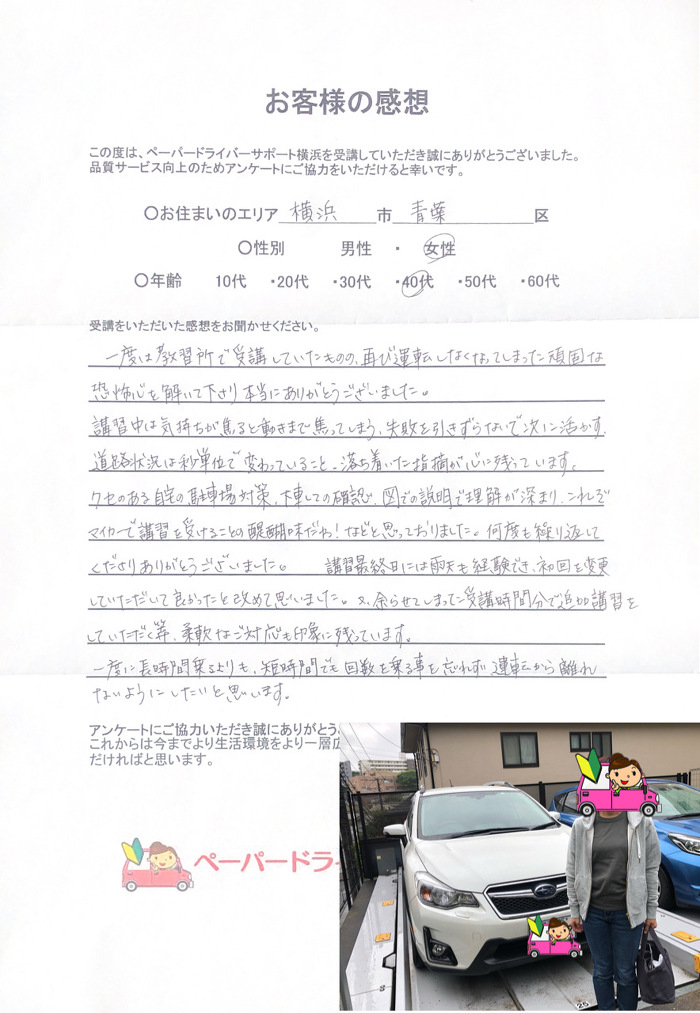 お客様の感想
この度は、ペーパードライバーサポート横浜を受講していただき誠にありがとうございました。
品質サービス向上のためアンケートにご協力をいただけると幸いです。
〇お住まいのエリア 横浜 市 青葉 区
〇性別 男性 ・ 女性
〇年齢 10代 ・20代 ・30代 ・40代 ・50代 ・60代
受講をいただいた感想をお聞かせください。
一度は教習所で受講していたものの、再び運転しなくなってしまった頑固な
恐怖心を解いて下さり本当にありがとうございました。
講習中は気持ちが焦ると動きまで焦ってしまう、失敗を引きずらないで次に活かす、
道路状況は秒単位で変わっていること、落ち着いた指摘が心に残っています。
クセのある自宅の駐車場対策、下車しての確認、図での説明で理解が深まり、これぞ
マイカーで講習を受けることの醍醐味だわ!などと思っておりました。何度も繰り返して
くださりありがとうございました。 講習最終日には雨天も経験でき、初回を変更
していただいて良かったと改めて思いました。又、余らせてしまった受講時間分で追加講習を
していただく等、柔軟なご対応も印象に残っています。
一度に長時間乗るよりも、短時間でも回数を乗る事を忘れず運転から離れ
ないようにしたいと思います。
アンケートにご協力いただき誠にありがとう
これからは今までより生活環境をより一層広
だければと思います。
ペーパードライ